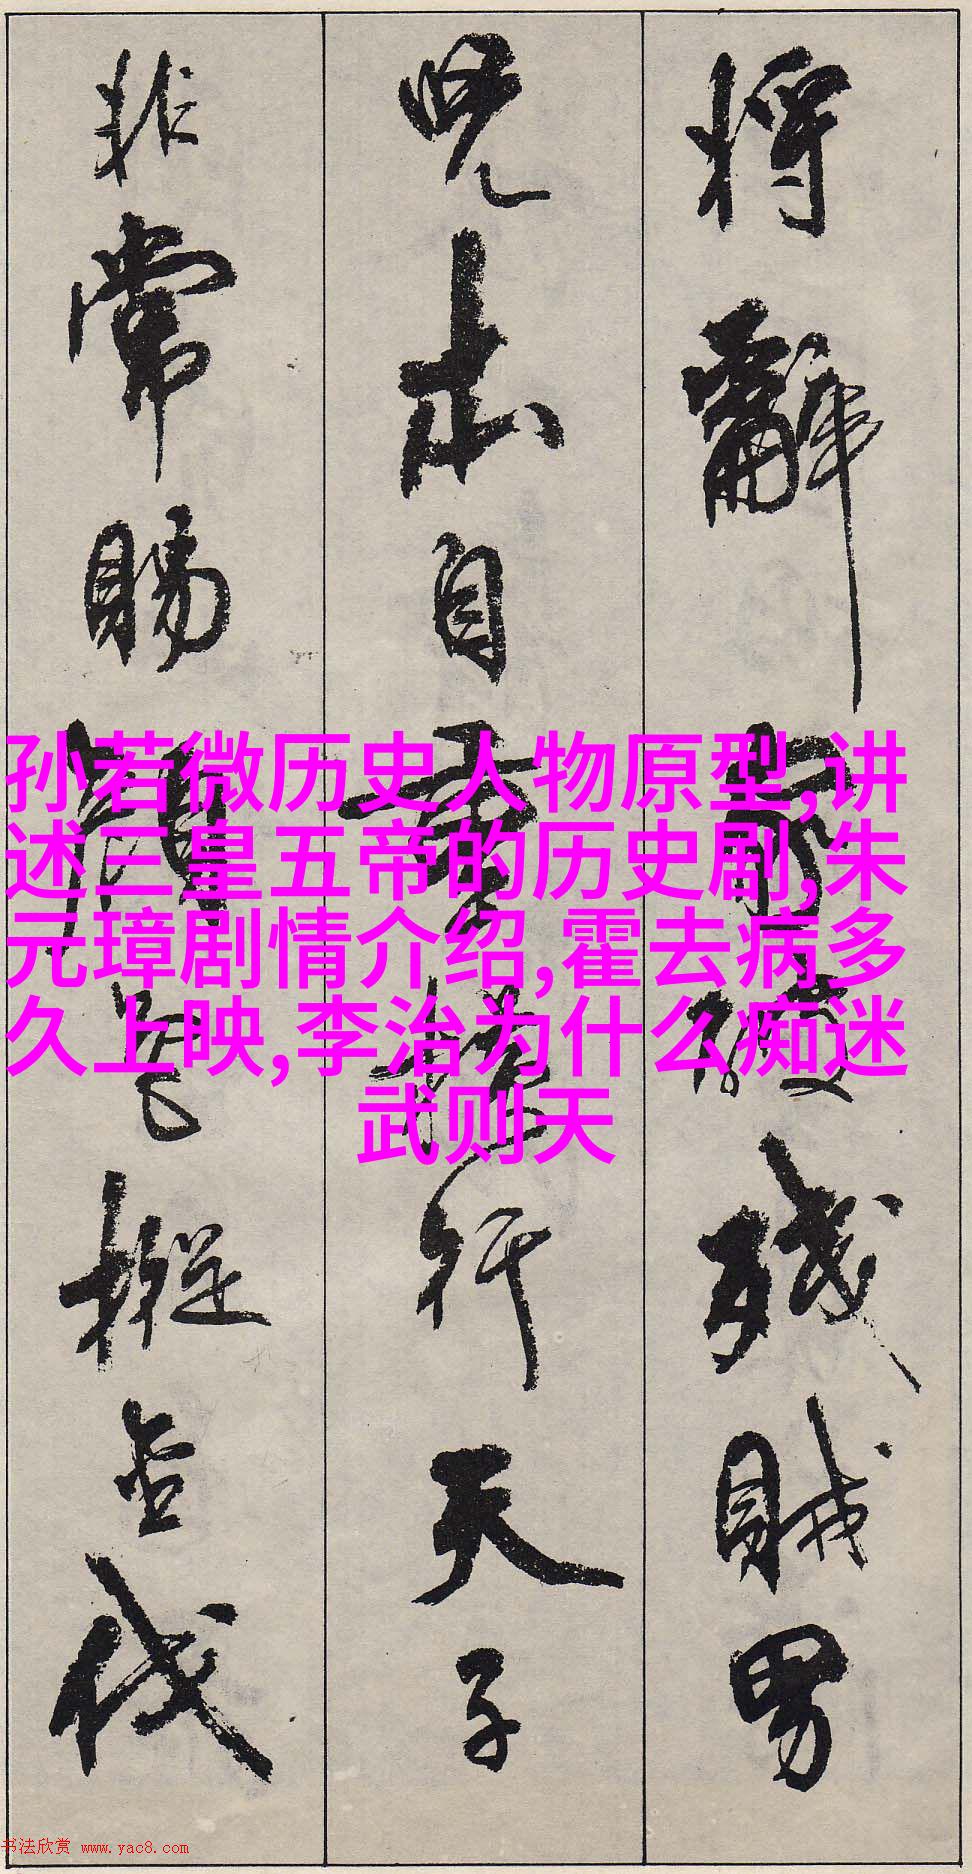 将辭家破残賊男
児本自重横行天子
非常賜顏色摐金伐
孙若微历史人物原型,讲
述三皇五帝的历史剧,朱
元璋剧情介绍,霍去病多
久上映,李治为什么痴迷
武则天
书法欣赏 www.yac8.com